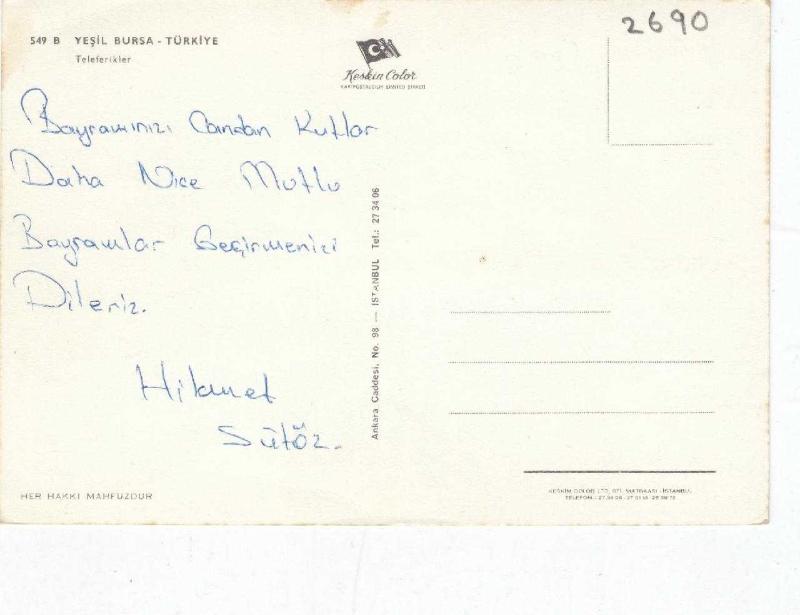 2690
549 B YEŞİL BURSA - TÜRKİYE
Teleferikler
Keskin Color
KARTPOSTALCILIK LİMİTED ŞİRKETİ
Bayramınızı Candan Kutlar
Daha Nice Mutlu
Bayramlar Geçirmenizi
Dileriz.
Hikmet
Sütöz.
Ankara Caddesi, No. 98 — İSTANBUL Tel.: 27 34 06
HER HAKKI MAHFUZDUR
KESKİN COLOR LTD. ŞTİ. MATBAASI - İSTANBUL